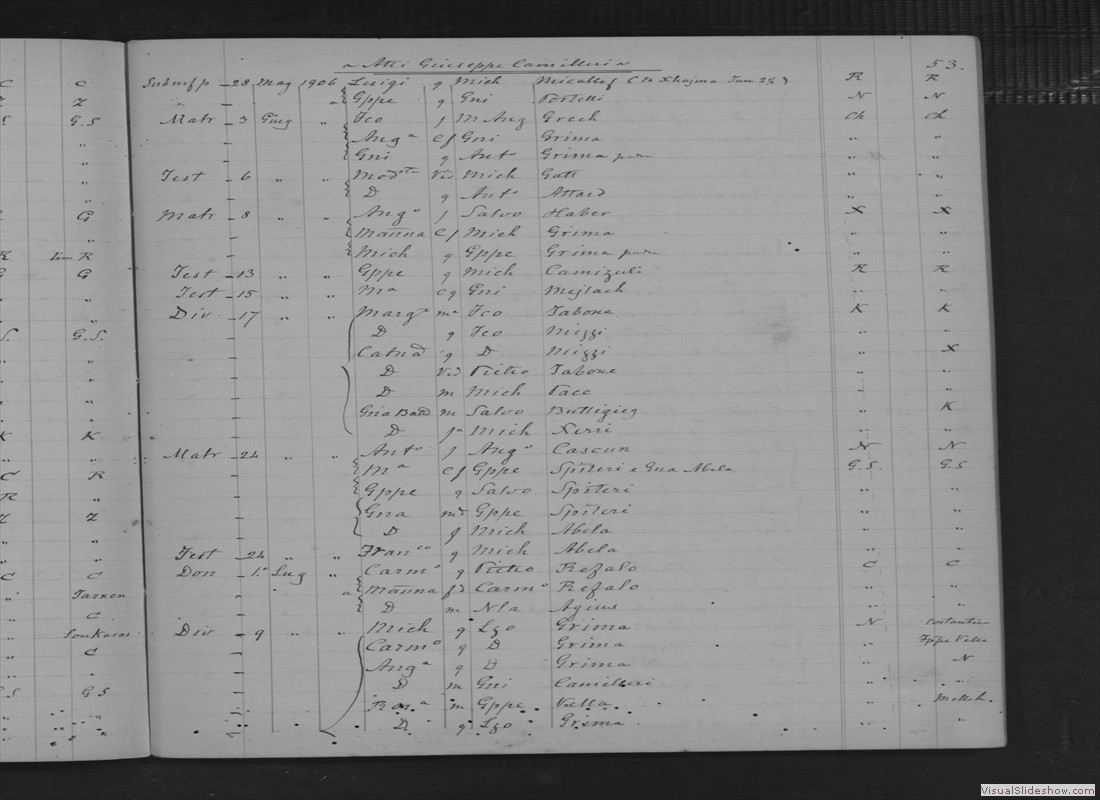 Atti Giuseppe Camilleri 53.
C C Submfp 28 Mag 1906 Luigi g Mich Micallef R R
Z Z " Gppe g Gni Portelli N N
S G.S Matr 3 Giug " Fco f M Ang Grech Ch Ch
" Ang a cf Gni Grima " "
" Gni g Ant o Grima " "
" Test 6 " " Vd Mich Gatt " "
" D g Ant o Attard " "
G Matr 8 " " Ang o f Salvo Haber X X
" Manna cf Mich Grima " "
R R Mich g Gppe Grima " "
G G Test 13 " " Gppe g Mich Camizuli R R
" Test 15 " " Ma cg Gni Mejlach " "
" Div 17 " " Marg a m Fco Tabone K K
S. G.S. D g Fco Mizzi " "
" Catna g D Mizzi " X
" D Vd Pietro Tabone " "
" D m Mich Pace " "
" Gna Batta m Salvo Buttigieg " K
K K D f Mich Xerri " "
" Matr 24 " " Ant o f Ang o Cascun N N
C R Ma cf Gppe Spiteri e Gna Abela G.S. G.S
R " Gppe g Salvo Spiteri " "
Z Z Gna Gppe Spiteri " "
" D f Mich Abela " "
" Test 24 " " Fran co g Mich Abela " "
C C Don 1. Lug " Carm o g Pietro Refalo C C
" Tarxen Manna f Carm o Refalo " "
" C D m Nla Agius " "
" Div 9 " " Mich g Lzo Grima N
" C Carm o g D Grima "
" Ang a g D Grima " N
G.S G.S D m Gni Camilleri " "
" Ros a m Gppe Vella " Melleh.
" D g Lzo Grima " "
VisualSlideshow.com